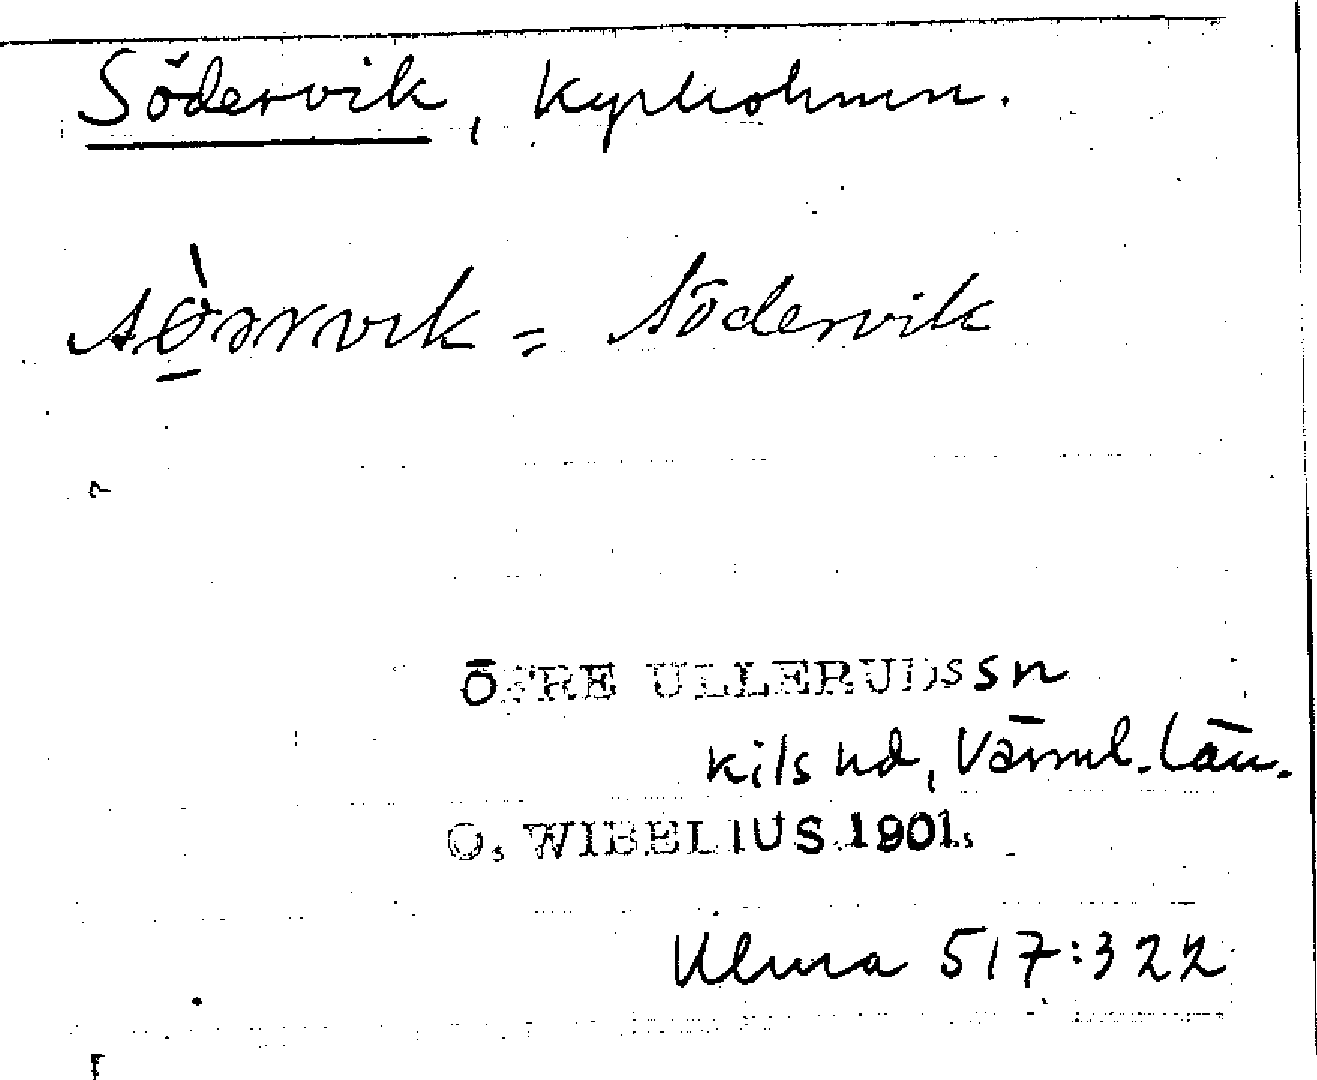 Södervik, Kyrkholmen.
Södervik
ÖFRE ULLERUDS sn
Kils hd, Värml. län.
O. WIBELIUS 1901.
Ulma 517:322